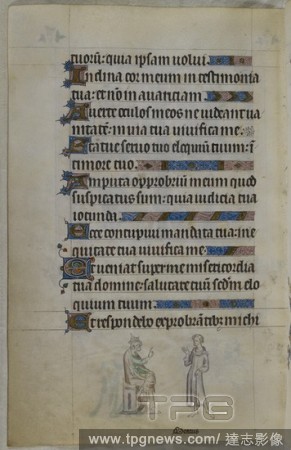 tuorū: quia ipsam volui.
Inclina cor meum in testimonia
tua: et nō in avariciam.
Averte oculos meos ne videant va
nitatē: in via tua vivifica me.
Statue servo tuo eloquiū tuum: ī
timore tuo.
Amputa opprobriū meum quod
suspicatus sum: quia iudicia tua
iocunda.
Ecce concupivi mandata tua: in e
quitate tua vivifica me.
Et veniat super me misericordia
tua domine: salutare tuū scdm elo
quium tuum.
Et respondebo exprobrātibȝ michi
TPG
www.tpgnews.com / 達志影像